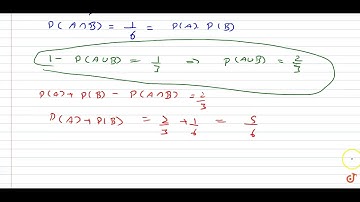 P(A∩B) = 1/6 = P(A) P(B)
1 - P(A∪B) = 1/3 ⇒ P(A∪B) = 2/3
P(A) + P(B) - P(A∩B) = 2/3
P(A) + P(B) = 2/3 + 1/6 = 5/6